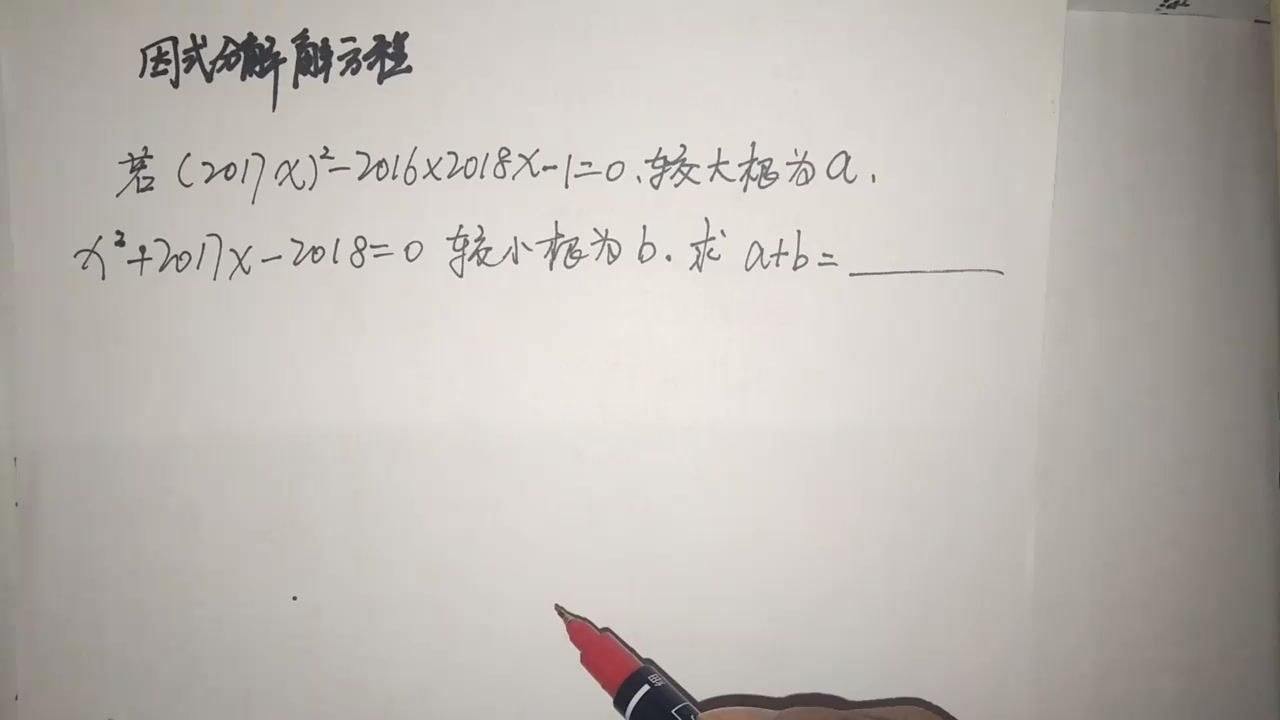 因式分解解方程
若(2017x)²-2016×2018x-1=0.较大根为a.
x²+2017x-2018=0 较小根为b.求a+b=______